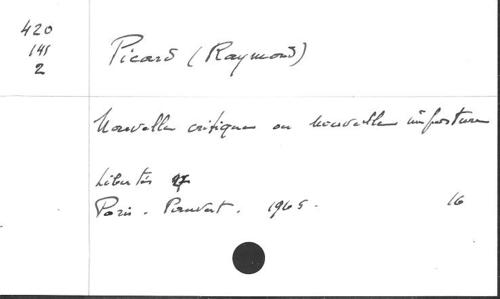 420
145
2
Picard (Raymond)
Nouvelle critique ou nouvelle imposture
Libertés 27
Paris. Pauvert. 1965.
16